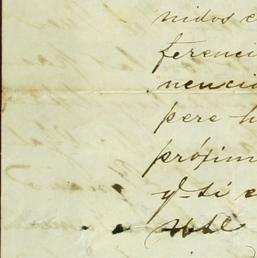 nidos e
ferenci
nencia
pere h
próxim
y si e